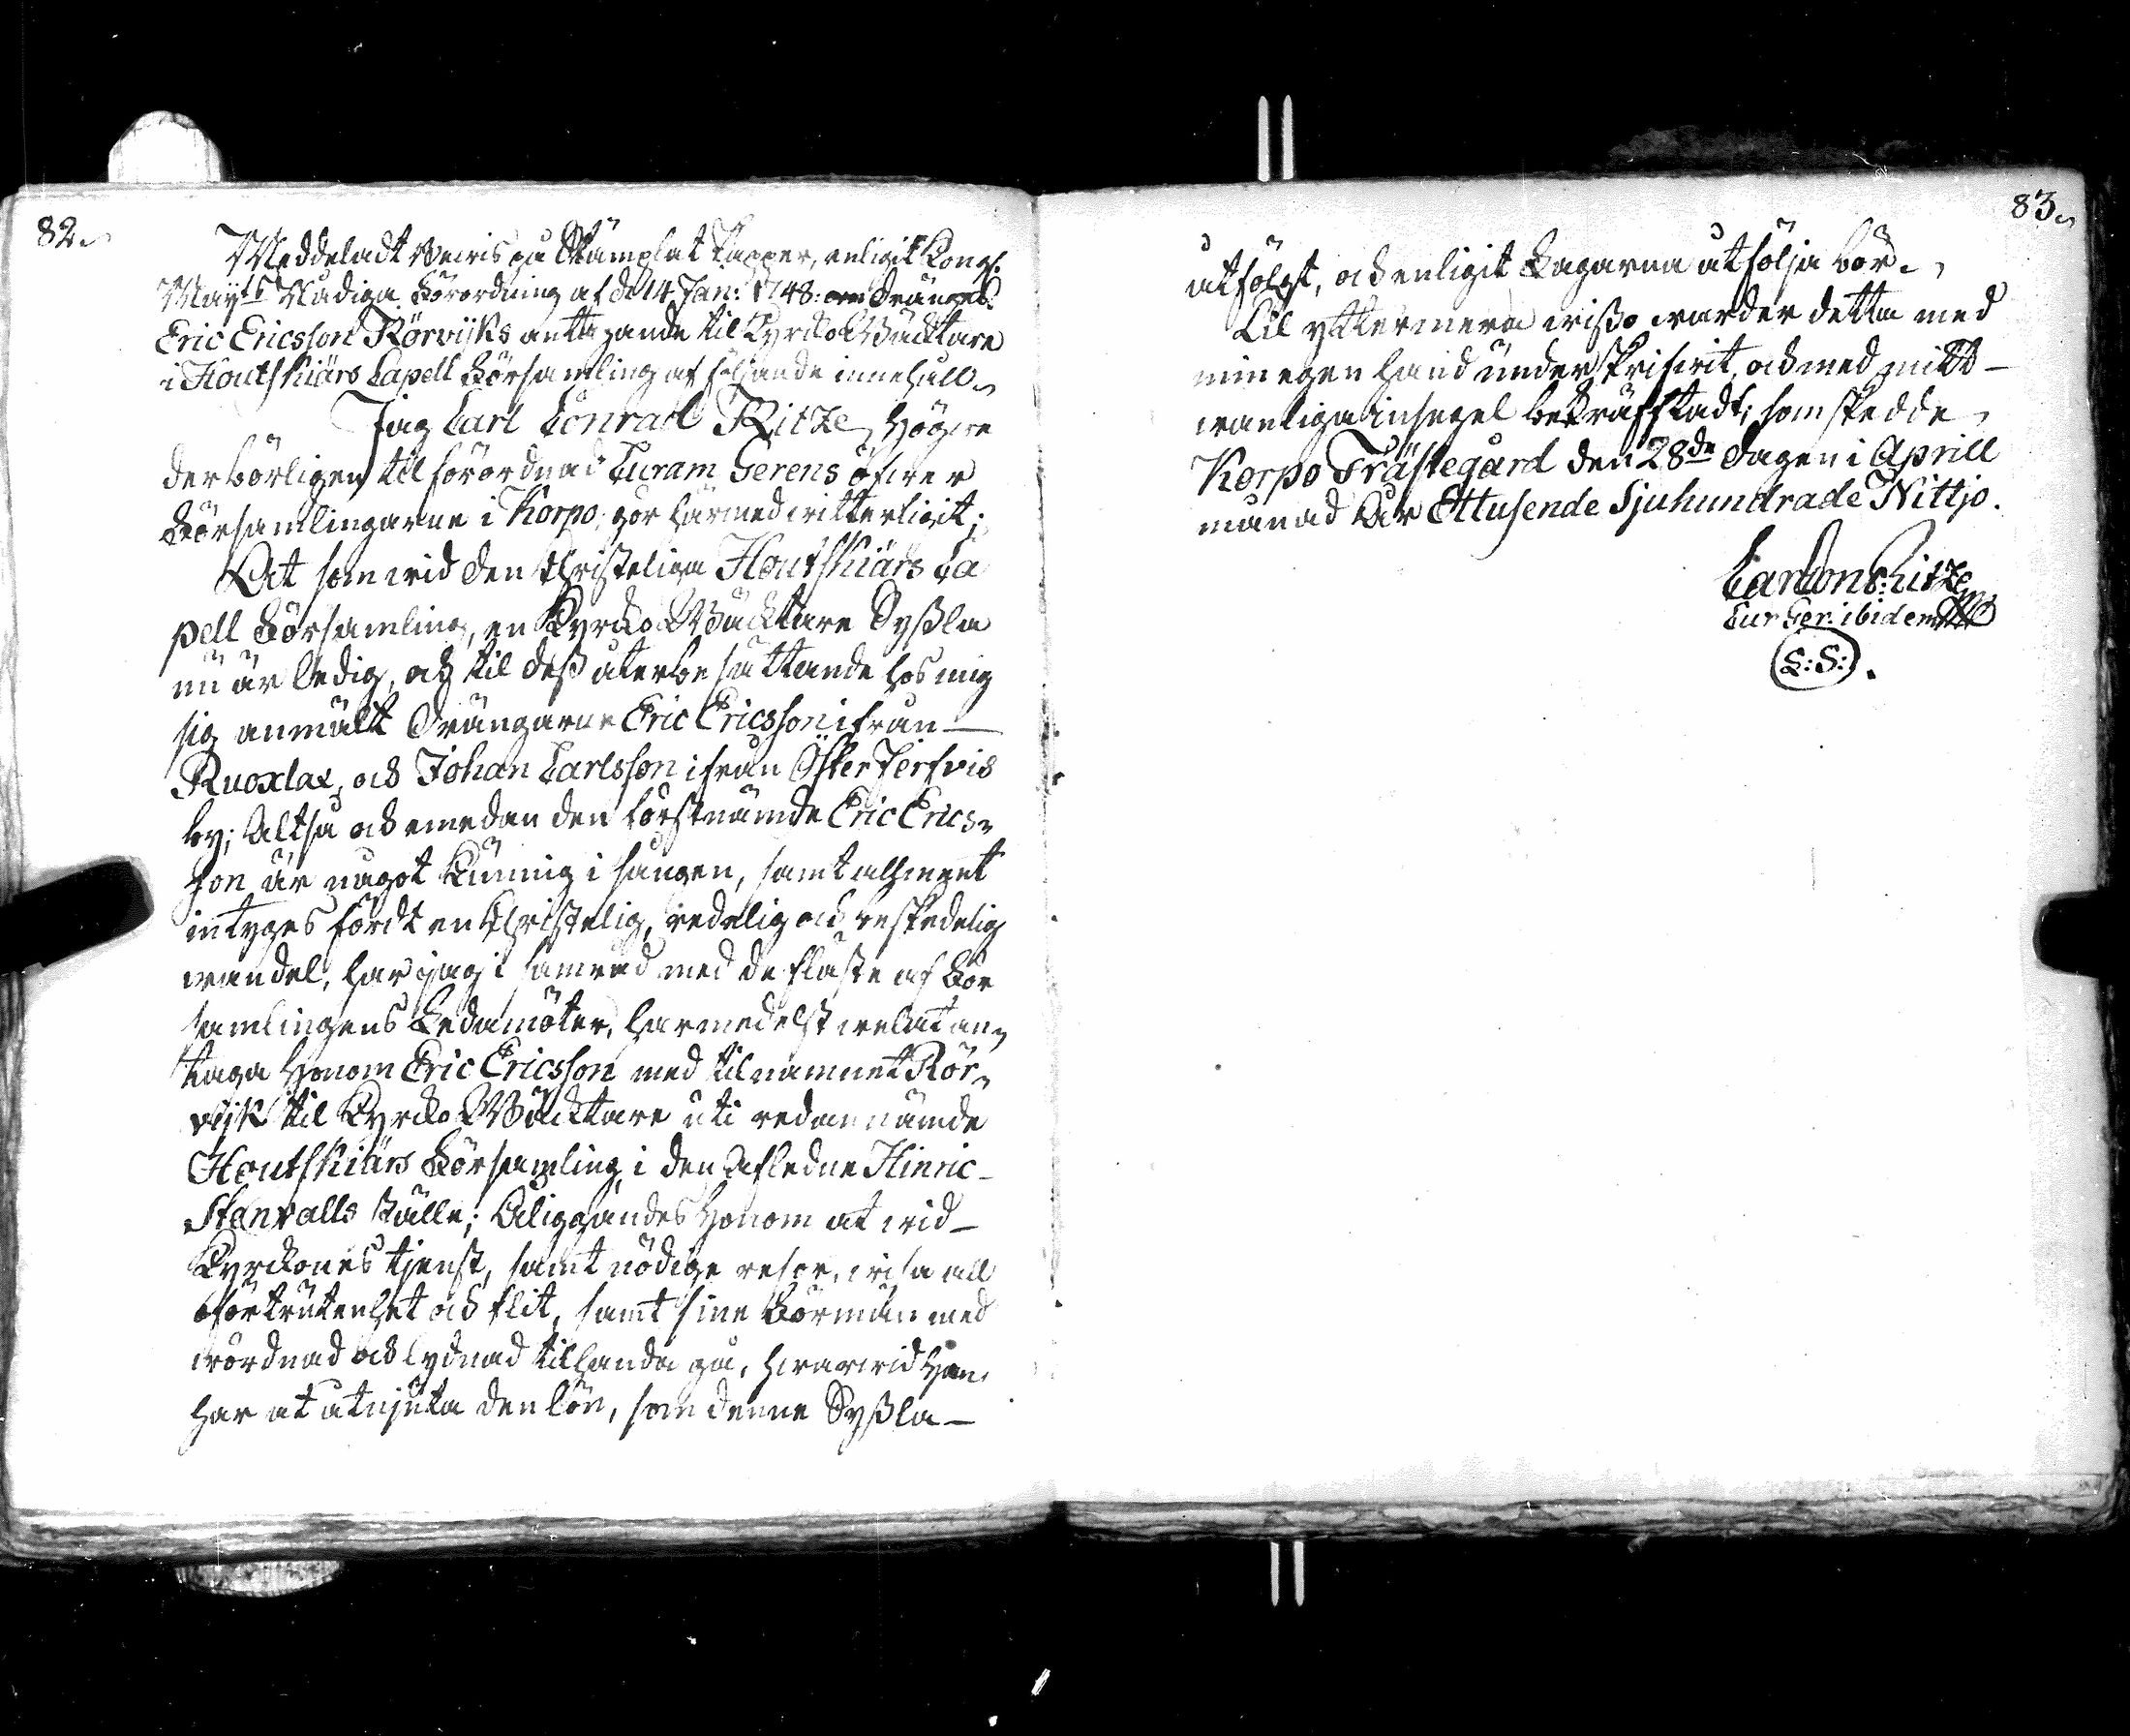 82.
Meddeladt Bewis på Stämplat Papper, enligit Kongl.
Mayts Nådiga Förordning af d. 14 Jan: 1748. om Drängens
Eric Ericsson Rörvijks antagande til Kyrckowäcktare
i Houtskiärs Capell Församling af följande innehåll.
Jag Carl Conrad Ritze, Högwe
derbörligen til förordnad Curam Gerens öfwer
Församlingarne i Korpo, gör härmed witterligit;
At som wid den Christeliga Houtskiärs Ca
pell Församling, en Kyrcko Wäcktare Sysßla
nu är ledig, och til deß återbesättande hos mig
sig anmält Drängarne Eric Ericsson ifrån
Ruoxlax, och Johan Carlsson ifrån Öster Jerfvis
by; Altså och emedan den förstnämde Eric Erics-
son är något kunnig i sången, samt allment
intyges fördt en Christelig, redelig och beskedelig
wandel, har jag i samråd med de fläste af För
samlingens Ledamöter, härmedelst welat an-
taga Honom Eric Ericsson med tilnamnet Rör-
vijk til Kyrcko Wäcktare uti redan nämde
Houtskiärs Församling, i den Afledne Hinric
Stenvalls ställe; Åliggandes Honom at wid
Kyrckones tjenst, samt nödige resor, wisa all
oförtrutenhet och flit, samt sine Förmän med
wördnad och lydnad tilhanda gå, hwarwid Han
har at åtnjuta den lön, som denne Sysßla
83.
åtfölgt, och enligit Lagarna åtfölja bör.
Til yttermera wißo warder detta med
min egen hand underskrifwit, och med mitt
wanliga insegel bekräfftadt; som skedde
Korpo Prästegård den 28de dagen i Aprill
månad Åhr Ettusende Sjuhundrade Nittjo.
Carl Conr: Ritze
Cur Ger: ibidem
L:S: